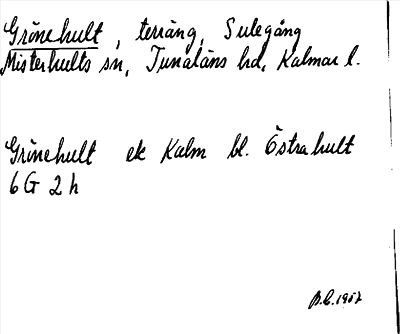 Grönehult, terräng, Sulegång
Misterhults sn, Tunaläns hd, Kalmar l.
Grönehult ek Kalm bl. Östrahult
6G 2h
B.L. 1957